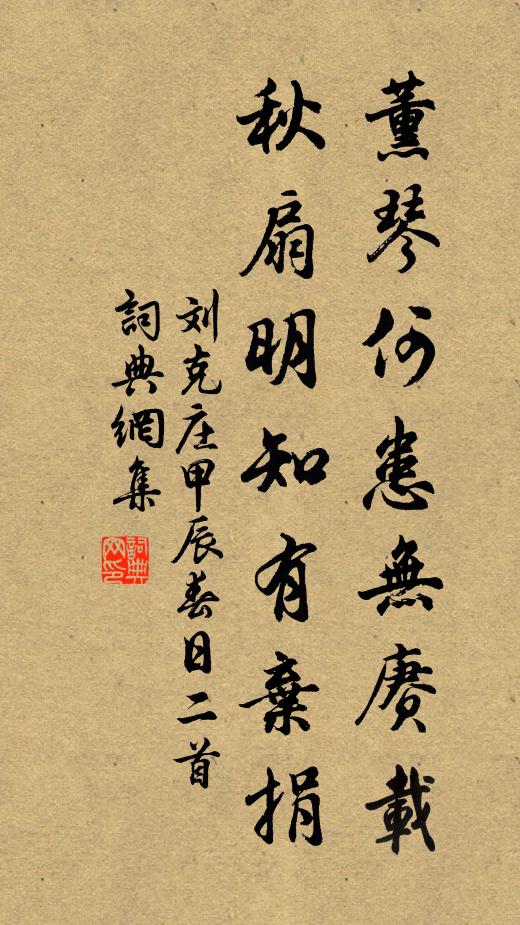 薰琴何患無赓載
秋扇明知有棄捐
刘克庄甲辰春日二首
詞典網集
詞典网印